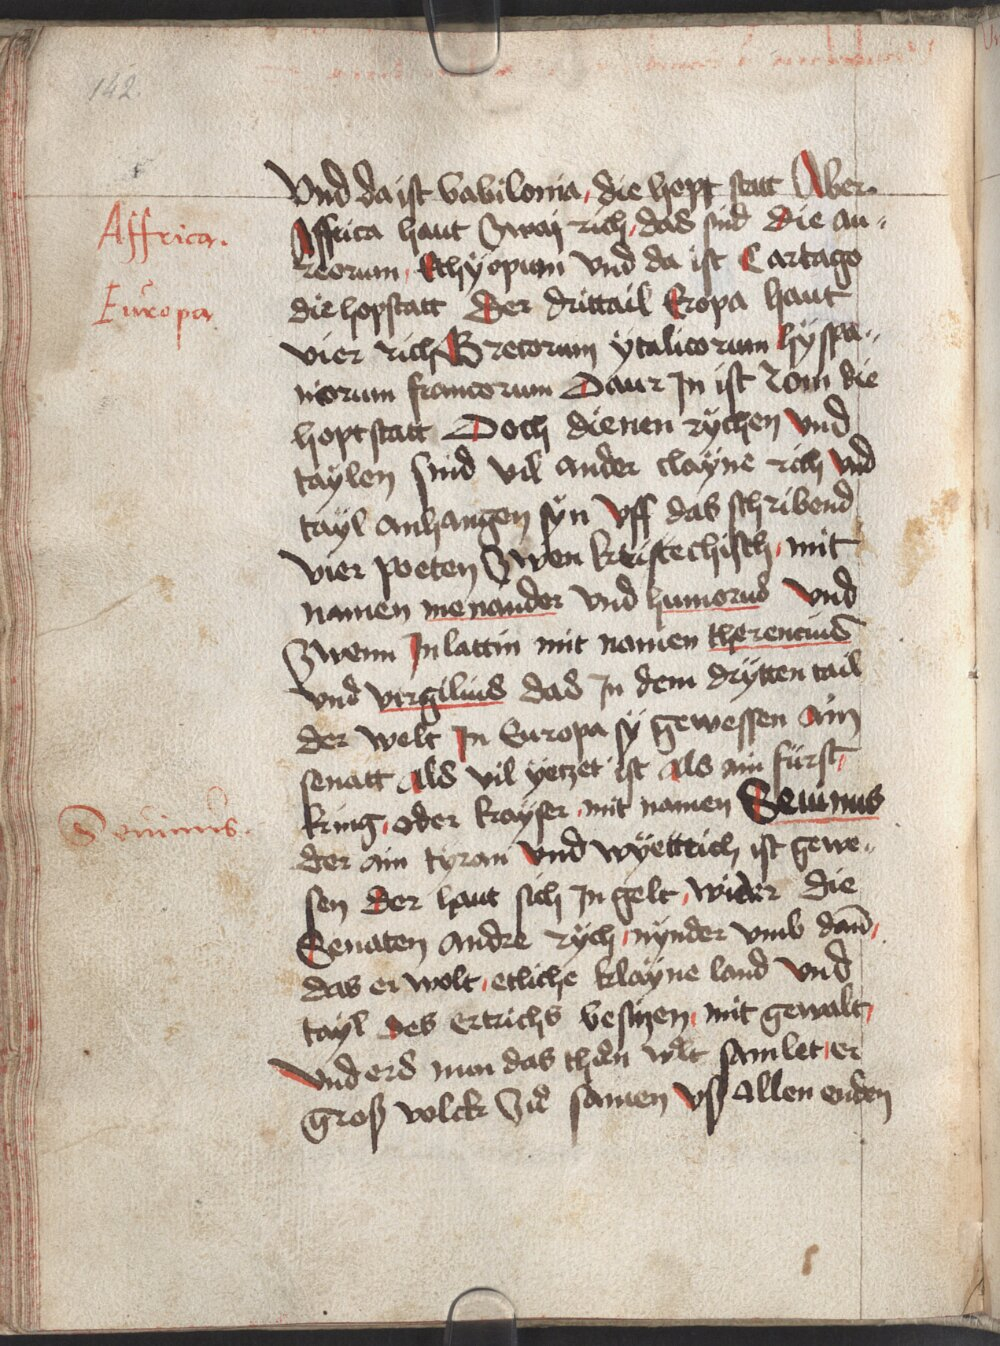 142.
Vnd da ist babilonia, die hopt statt Aber
Affrica.
Affrica haut zway rich, das sind die au-
reorum, Ethyopum vnd da ist Cartago
Europa
die hopstatt Der drittail Eropa haut
vier rich Gretorum ytalicorum hyspa-
niorum francorum Daur jn ist Rom die
hoptstatt Doch dienen rychen vnd
taylen sind vil ander clayne rich vnd
tayl anhangen syn vff das schribend
vier poeten zwen kriстechisch, mit
namen menander vnd humorus vnd
zwenn jn lattin mit namen therencius
vnd virgilius das jn dem drytten tail
der welt jn Europa sy gewessen ain
senatt als vil yetzet ist als ain fürst,
Seuinus.
kring, oder kayser, mit namen Seuinus
der ain tyran vnd wyettrich ist gewe-
sen Der haut sich jn gelt, wider die
Senaten andre rych, nynder vmb dan̄,
das er wolt, etliche klayne land vnd
tayl des ertrichs besitzen, mit gewalt,
vnd ers nun das thůn wlt samlet, er
groß volck zů samen vß allen enden